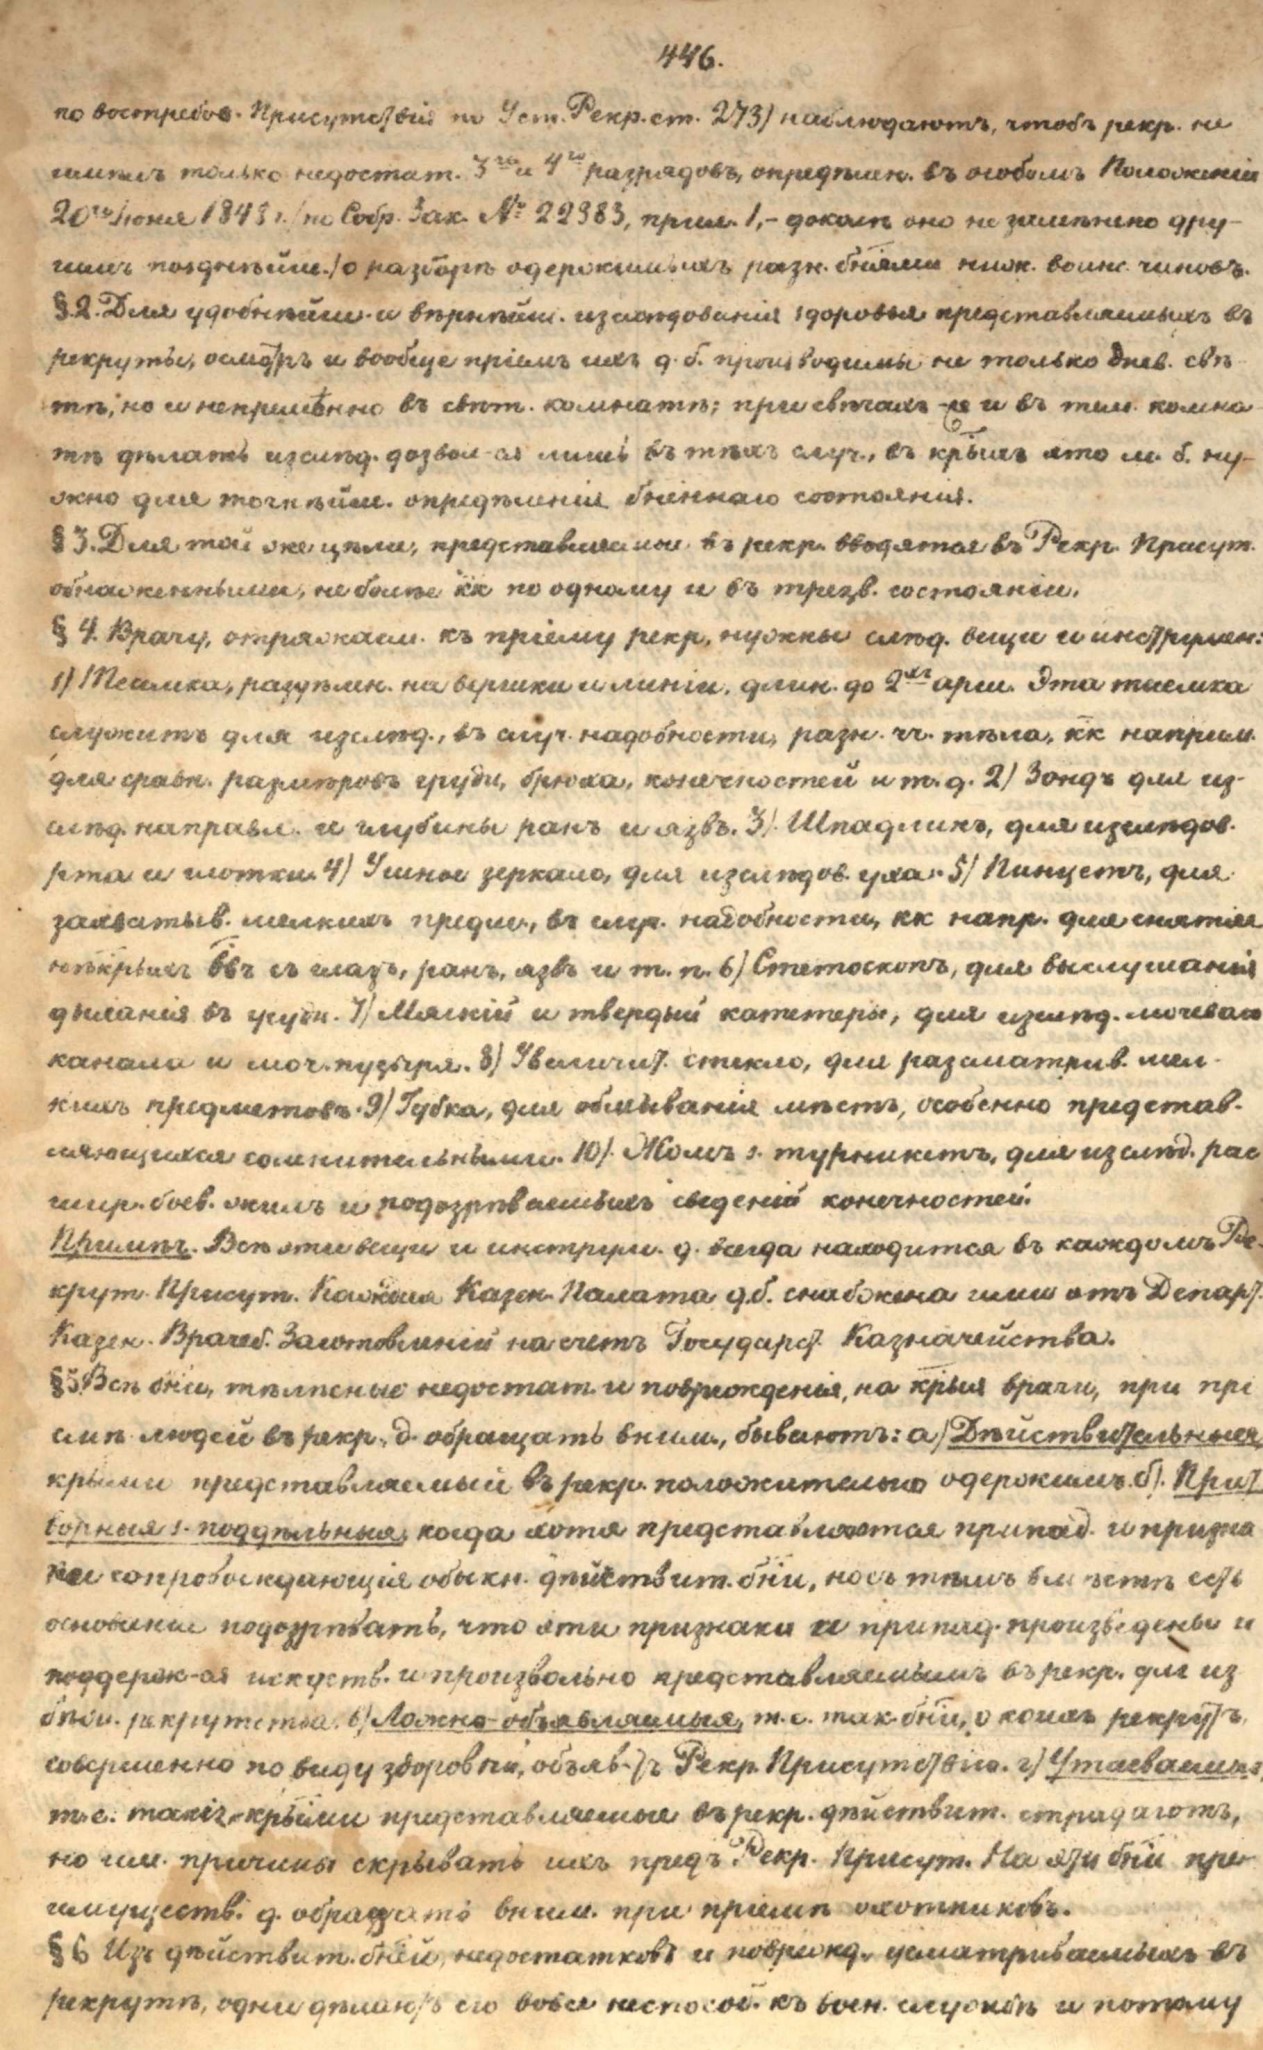 446.
по востребов. Присутствія по Уст. Рекр. ст. 273) наблюдаютъ, чтобъ рекр. не
имѣлъ только недостат. 3го и 4го разрядовъ, опредѣлен. въ особомъ Положеніи
20го Іюня 1843 г. (по Собр. Зак. № 22383, прил. 1,– доколѣ оно не замѣнено дру-
гимъ позднѣйш.) о разборѣ одержимыхъ разн. бнями нижн. воинс. чиновъ.
§ 2. Для удобнѣйш. и вѣрнѣйш. изслѣдованія здоровья представляемыхъ въ
рекруты, осмотръ и вообще пріемъ ихъ д. б. производимы не только днев. свѣ-
тѣ; но и непремѣнно въ свѣт. комнатѣ; при свѣчахъ же и въ тем. комна-
тѣ дѣлать изслѣд. дозвол-ся лишь въ тѣхъ случ., въ крыхъ это м. б. ну-
жно для точнѣйш. опредѣленія бненнаго состоянія.
§ 3. Для той же цѣли, представляемые въ рекр. вводятся въ Рекр. Присут.
обнаженными, не болѣе кк по одному и въ трезв. состояніи.
§ 4. Врачу, отряжаем. къ пріему рекр. нужны слѣд. вещи и инструмен:
1) Тесьмка, раздѣлен. на вершки и линіи, длин. до 2хъ арш. Эта тесьмка
служитъ для изслѣд., въ случ. надобности, разн. чч. тѣла, кк наприм.
для сравн. размѣровъ груди, брюха, конечностей и т. д. 2) Зондъ для из-
слѣд. направл. и глубины ранъ и язвъ. 3) Шпадлинъ, для изслѣдов.
рта и глотки. 4) Ушное зеркало, для изслѣдов. уха. 5) Пинцетъ, для
захватыв. мелкихъ предм., въ случ. надобности, кк напр. для снятія
нѣкрыхъ ввъ съ глазъ, ранъ, язвъ и т. п. 6) Стетоскопъ, для выслушанія
дыханія въ груди. 7) Мягкій и твердый катетеры, для изслѣд. мочеваго
канала и моч. пузыря. 8) Увеличит. стекло, для разсматрив. мел-
кихъ предметовъ. 9) Губка, для обмыванія мѣстъ, особенно представ-
ляющихся сомнительными. 10) Жомъ s. турникетъ, для изслѣд. рас
шир. боев. жилъ и подозрѣваемыхъ сведеній конечностей.
Примѣч. Всѣ эти вещи и инструм. д. всегда находится въ каждомъ Ре-
крут. Присут. Каждая Казен. Палата д. б. снабжена ими отъ Департ.
Казен. Врачеб. Заготовленій на счетъ Государст. Казначейства.
§ 5. Всѣ бни, тѣлесные недостат. и поврежденія, на крыя врачи, при прі
емѣ людей въ рекр., д. обращать вним., бываютъ: а) Дѣйствительныя,
крыми представляемый въ рекр. положительно одержимъ. б) Прит
ворныя s. поддѣльныя, когда хотя представляются припад. и призна
ки сопровождающія обыкн. дѣйствит. бни, но съ тѣмъ вмѣстѣ есть
основаніе подозрѣвать, что эти признаки и припад. произведены и
поддерж-ся искуств. и произвольно представляемымъ въ рекр. для из
бѣж. рекрутства. в) Ложно-объявляемыя, т. е. так. бни, о коихъ рекрутъ,
совершенно по виду здоровый, объяв-тъ Рекр. Присутствію. г) Утаеваемыя,
т. е. такія, крыми представляемые въ рекр. дѣйствит. страдаютъ,
но им. причины скрывать ихъ предъ Рекр. Присут. На эти бни пре-
имуществ. д. обращать вним. при пріемѣ охотниковъ.
§ 6 Изъ дѣйствит. бней, недостатковъ и поврежд. усматриваемыхъ въ
рекрутѣ, одни дѣлаютъ его вовсе неспособ. къ воен. службѣ и потому